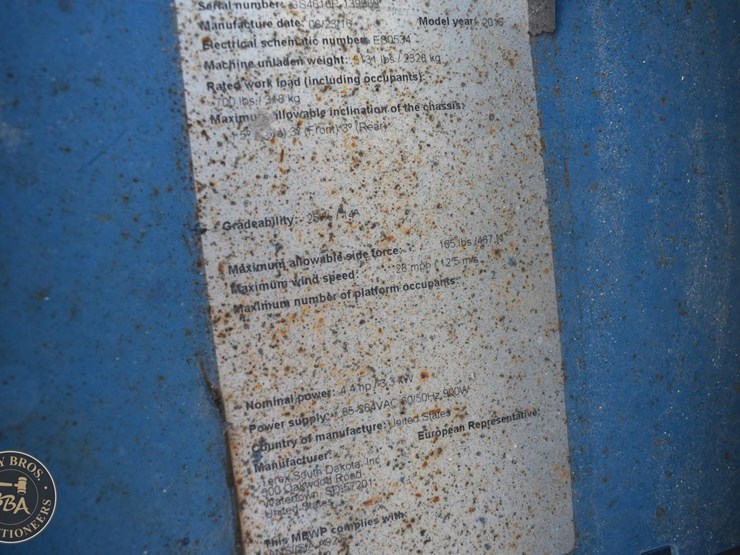 Serial number:
Manufacture date: 06/23/16 Model year: 2016
Electrical schematic number: ES0534
Machine unladen weight: lbs / 2326 kg
Rated work load (including occupants):
700 lbs / 318 kg
Maximum allowable inclination of the chassis:
3° (Front) 3° (Rear)
Gradeability:
Maximum allowable side force: 105 lbs /467 N
Maximum wind speed: 28 mph / 12.5 m/s
Maximum number of platform occupants: 2
Nominal power: 4.4 hp / 3.3 kW
Power supply: 60/50Hz, 900W
Country of manufacture: United States
Manufacturer: European Representative:
Terex South Dakota, Inc
500 Oakwood Road
Watertown, SD 57201
United States
This MEWP complies with:
BROS.
BBA